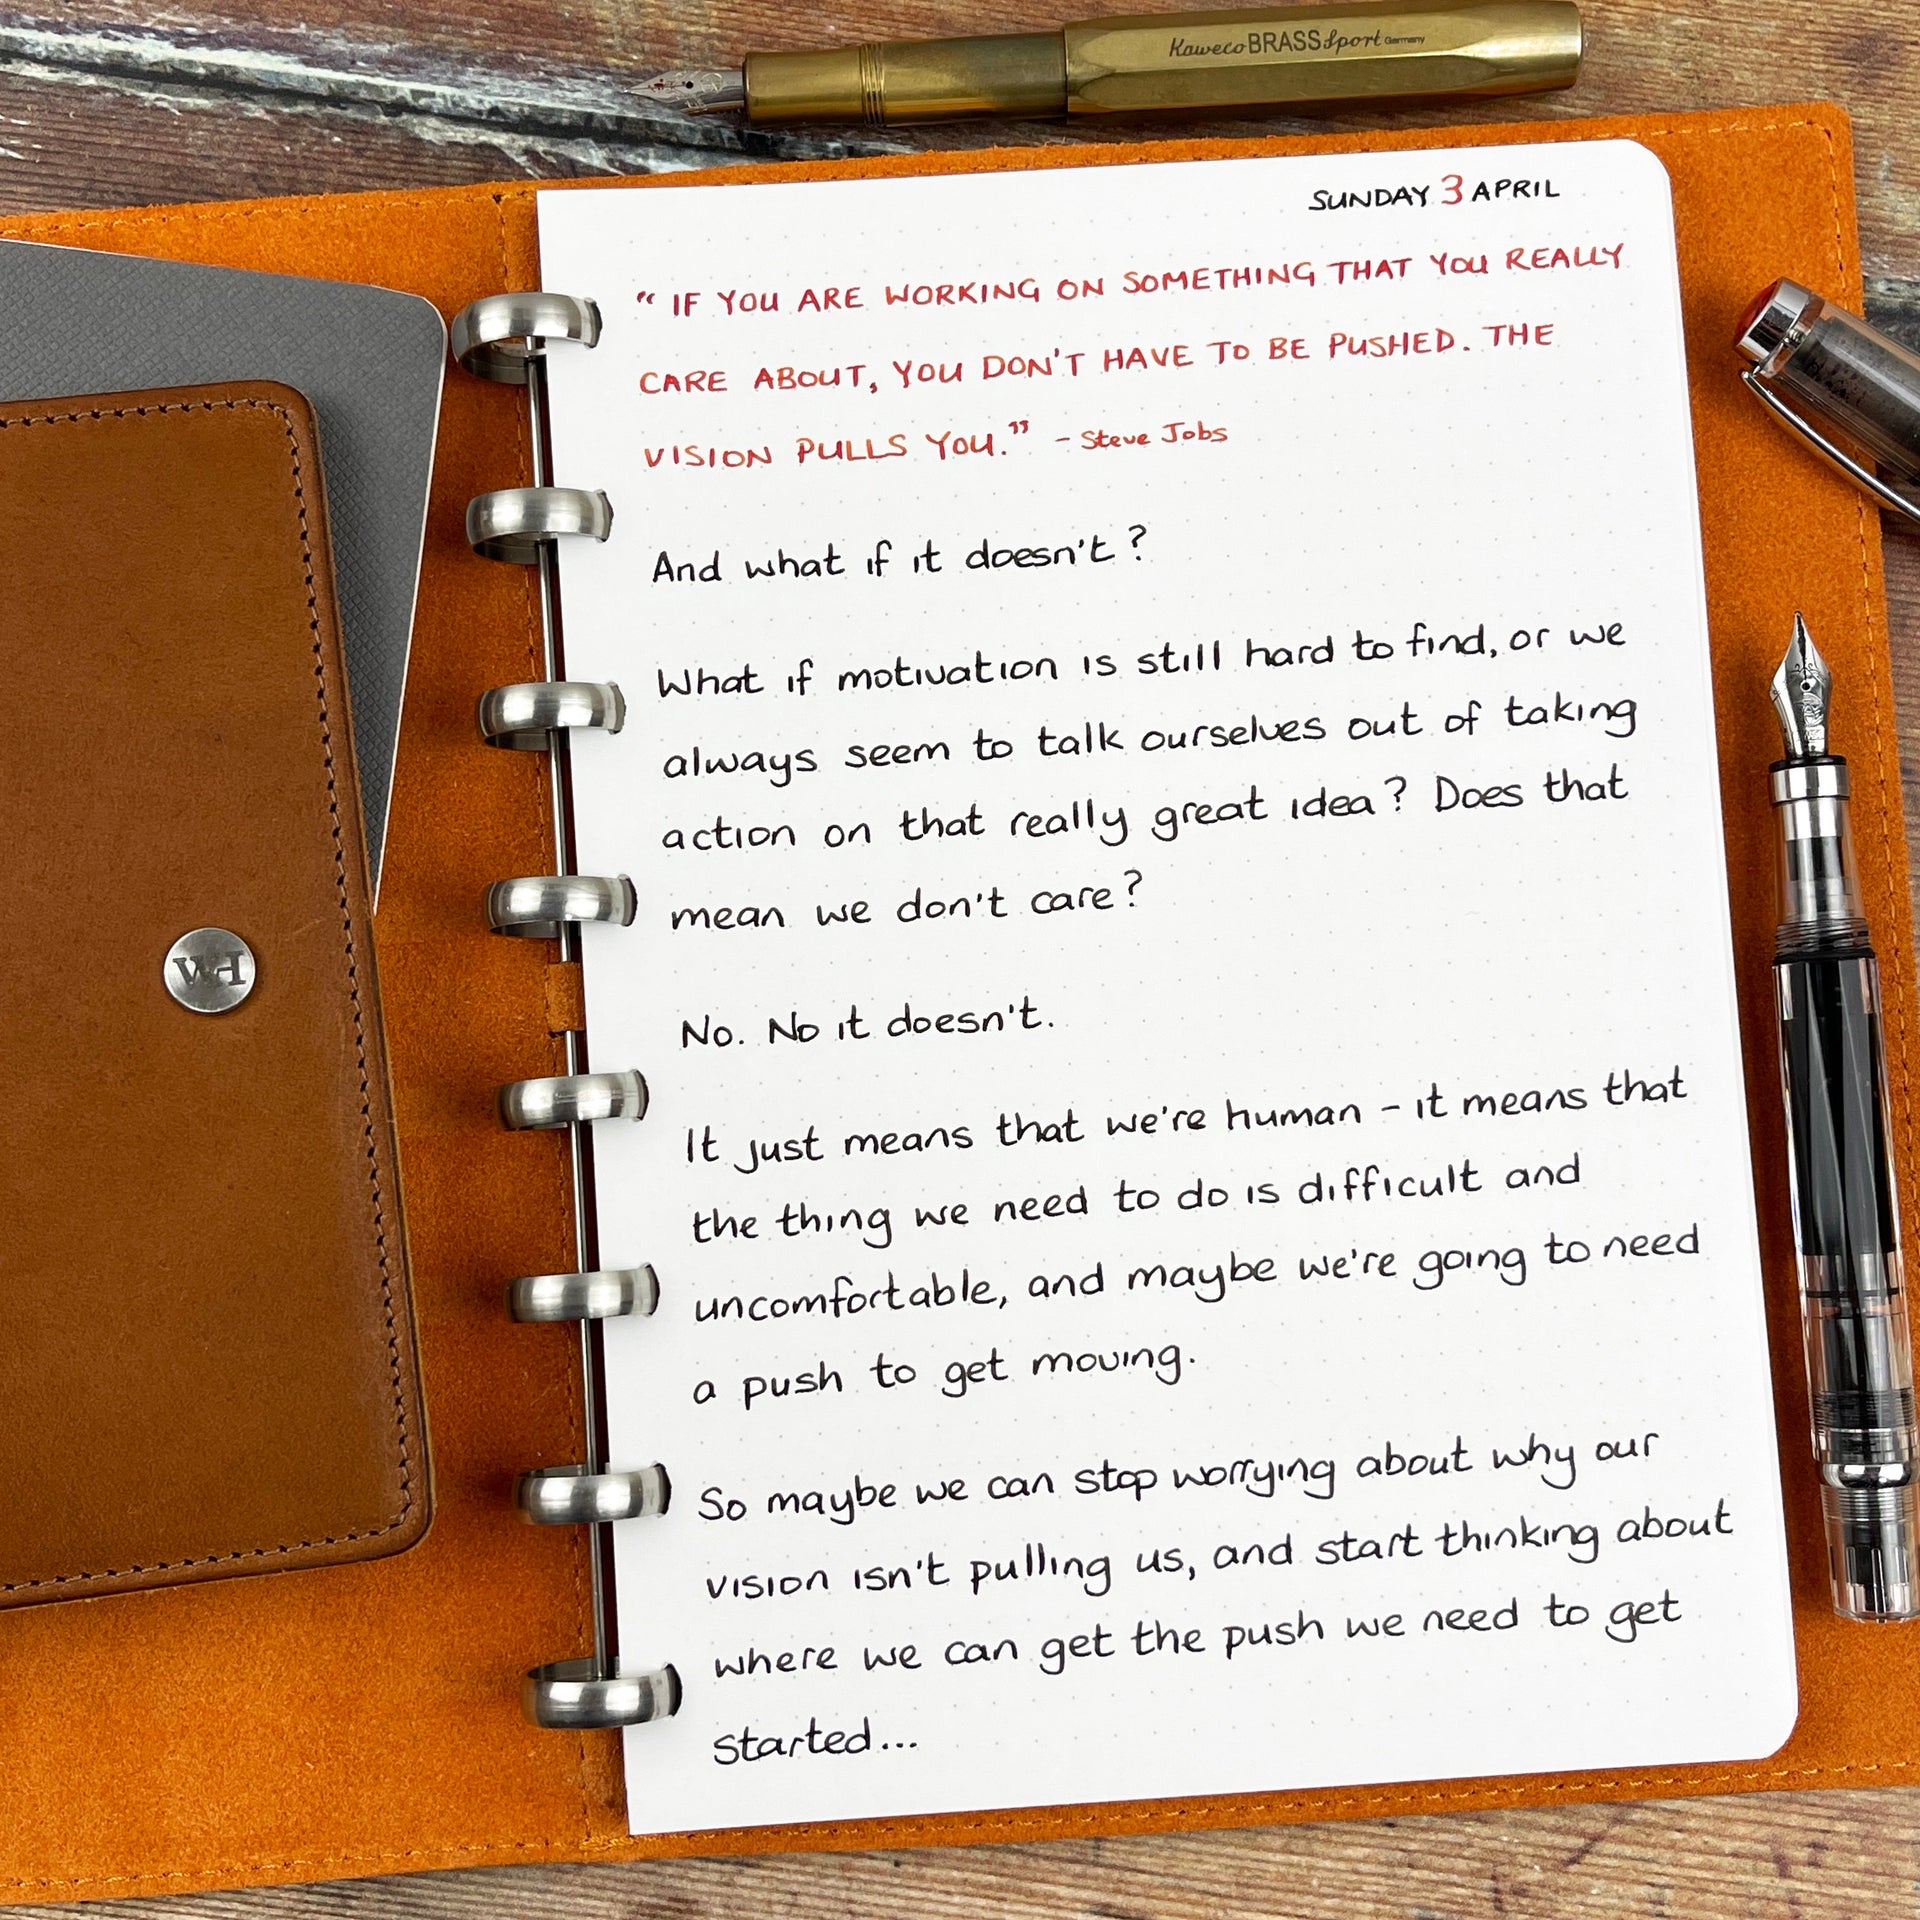 Kaweco BRASS Sport Germany
SUNDAY 3 APRIL
" IF YOU ARE WORKING ON SOMETHING THAT YOU REALLY
CARE ABOUT, YOU DON'T HAVE TO BE PUSHED. THE
VISION PULLS YOU." - Steve Jobs
And what if it doesn't?
What if motivation is still hard to find, or we
always seem to talk ourselves out of taking
action on that really great idea? Does that
mean we don't care?
No. No it doesn't.
It just means that we're human - it means that
the thing we need to do is difficult and
uncomfortable, and maybe we're going to need
a push to get moving.
So maybe we can stop worrying about why our
vision isn't pulling us, and start thinking about
where we can get the push we need to get
started...
WH